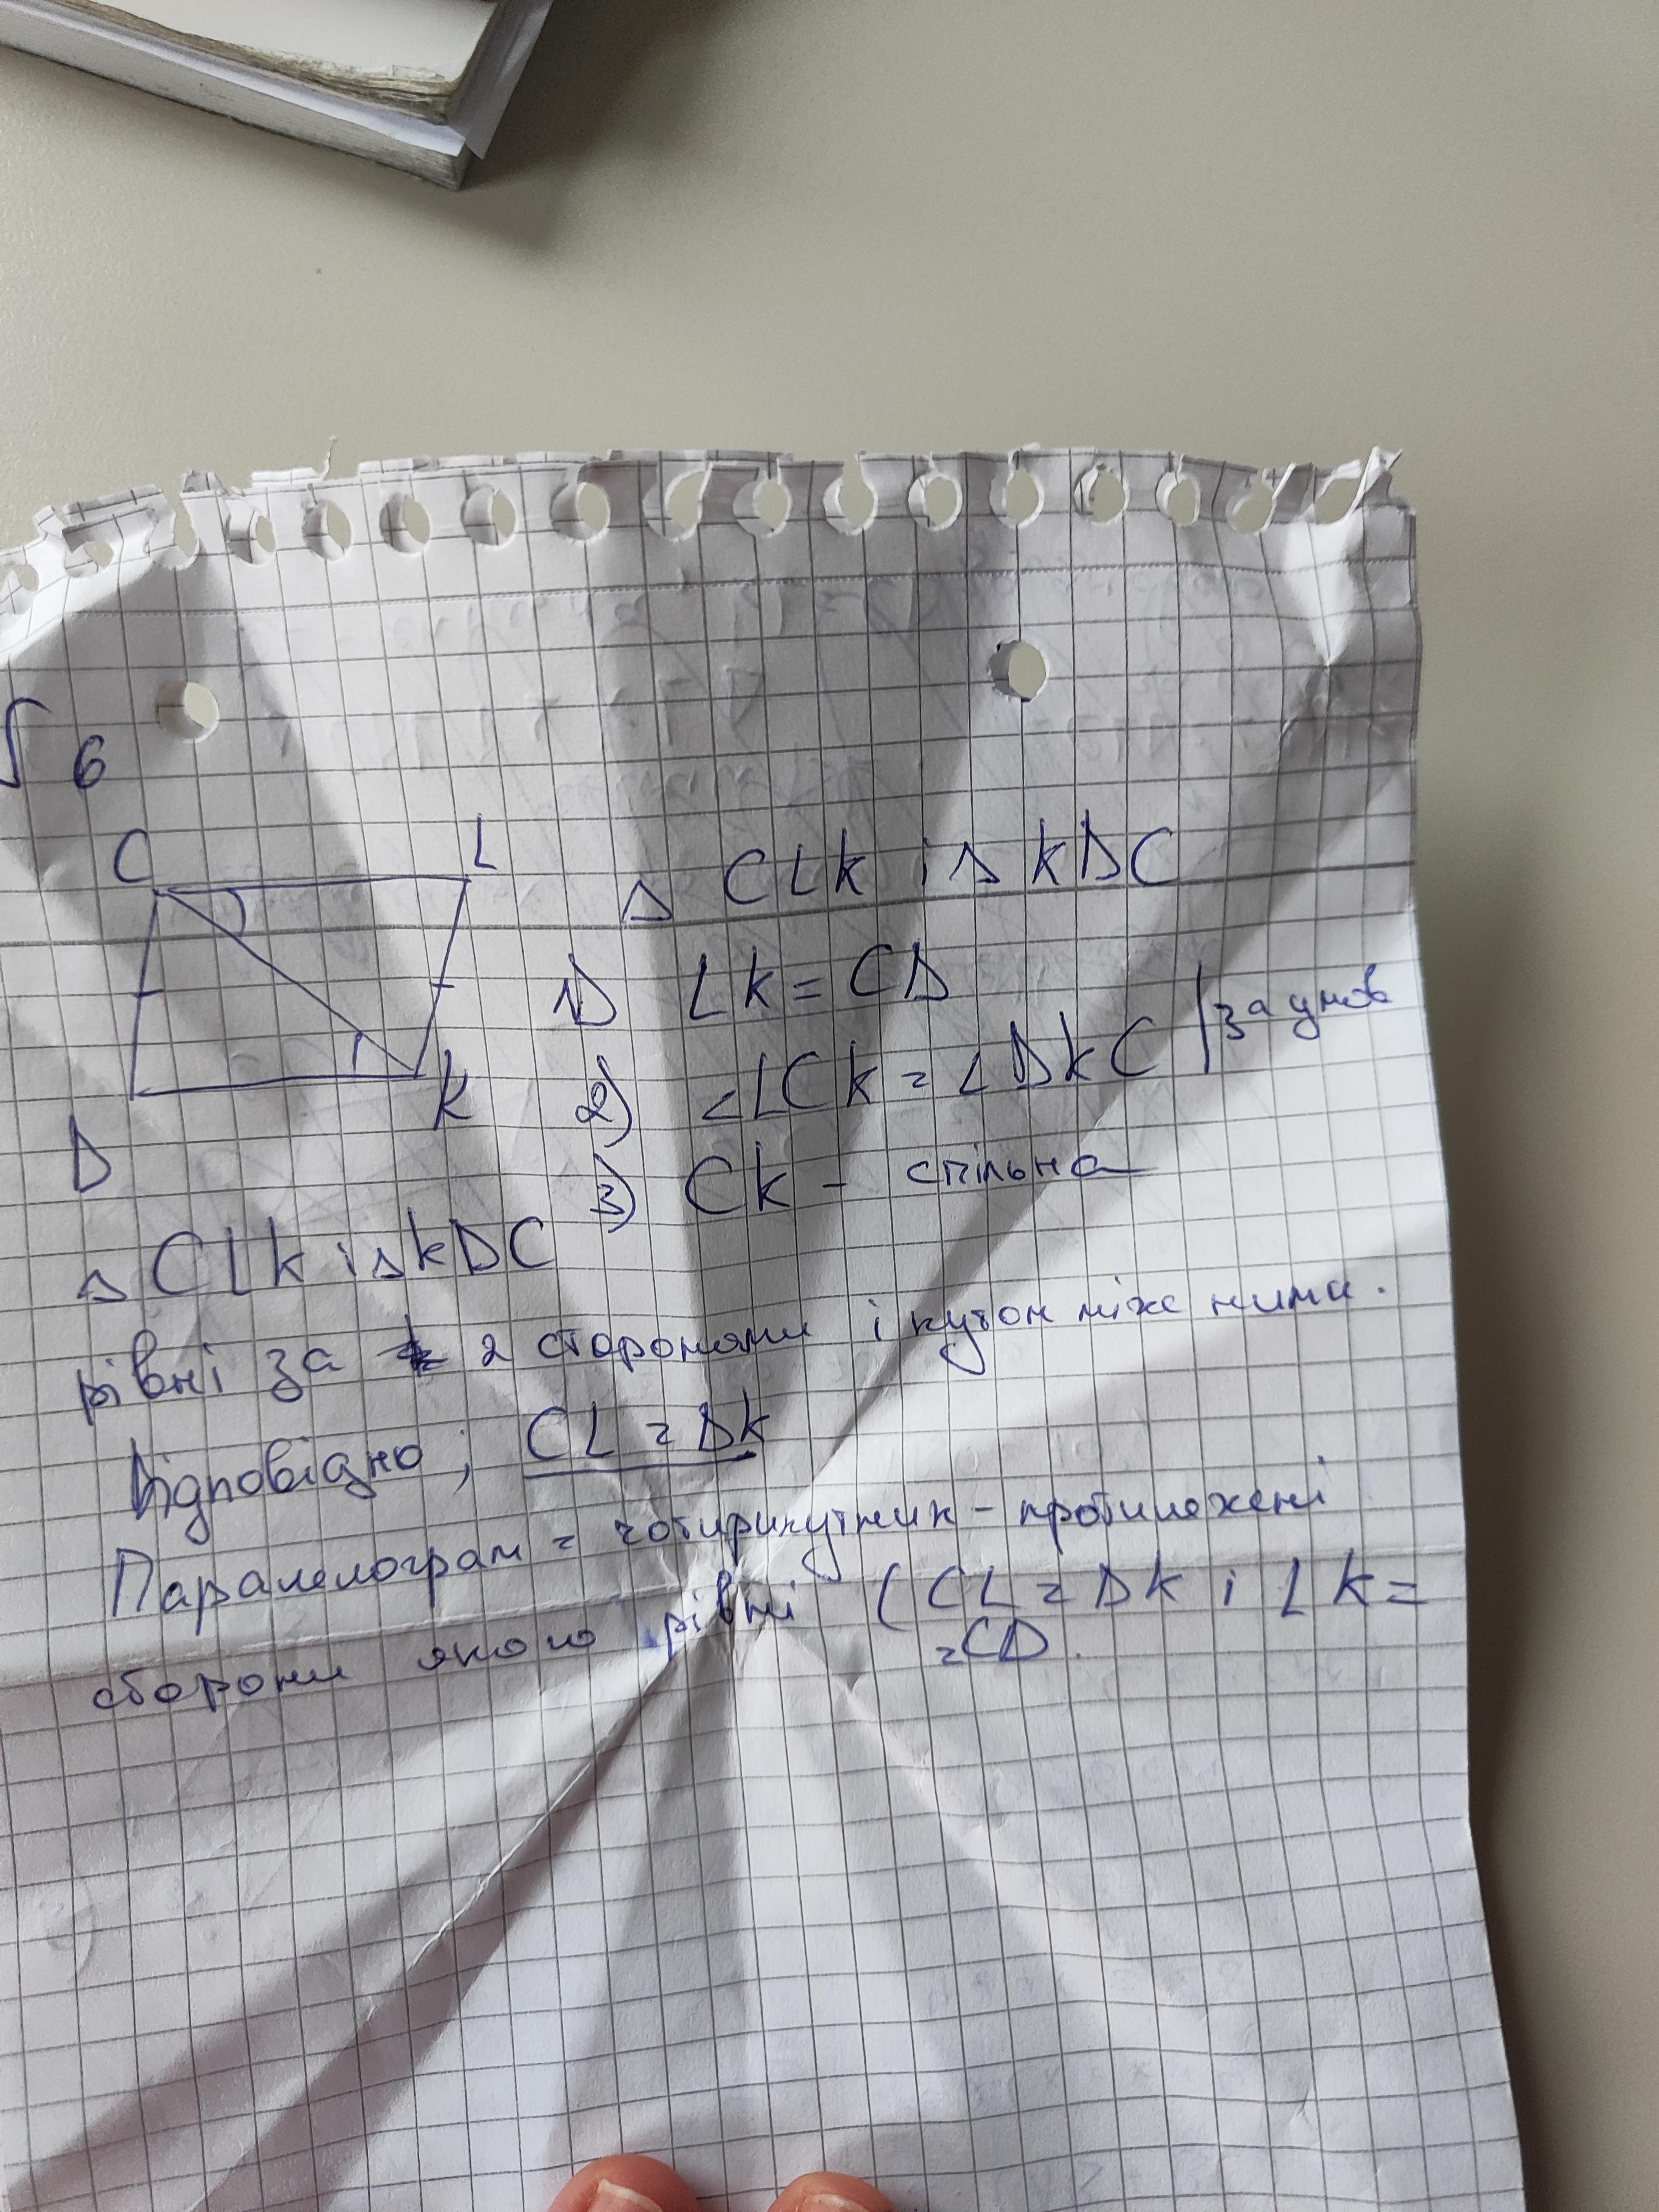 6
C L
D K
△ CLK і △ KDC
1) LK = CD
2) ∠LCK = ∠DKC | за умов
3) CK - спільна
△ CLK і △ KDC
рівні за 2 сторонами і кутом між ними.
Відповідно, CL = DK
Паралелограм = чотирикутник - протилежні
сторони якого рівні (CL = DK і LK =
= CD.